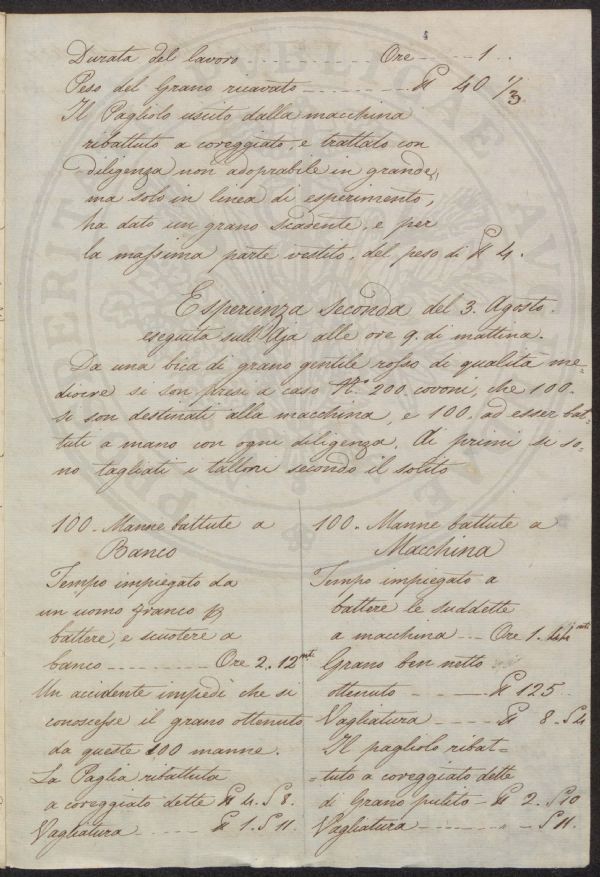 Durata del lavoro ---------- Ore ----- 1 ..
Peso del Grano ricavato ---------- ℔ 40 1/3
Il Pagliolo uscito dalla macchina
ribattuto a coreggiato, e trattato con
diligenza non adoprabile in grande,
ma solo in linea di esperimento,
ha dato un grano scadente, e per
la massima parte vestito, del peso di ℔ 4.
Esperienza Seconda del 3. Agosto.
eseguita sull'Aja alle ore 9. di mattina.
Da una bica di grano gentile rosso di qualità me-
diocre si son presi a caso N.° 200 covoni, che 100.
si son destinati alla macchina, e 100. ad esser bat-
tuti a mano con ogni diligenza. Ai primi si so-
no tagliati i talloni secondo il solito
100. Manne battute a
Banco
Tempo impiegato da
un uomo franco p
battere, e scuotere a
banco ---------- Ore 2. 12 mti
Un accidente impedì che si
conoscesse il grano ottenuto
da queste 100 manne.
La Paglia ribattuta
a coreggiato dette ℔ 4. S 8.
Vagliatura ------ ℔ 1. S 11.
100. Manne battute a
Macchina
Tempo impiegato a
battere le suddette
a macchina --- Ore 1. 44 mti
Grano ben netto
ottenuto ------ ℔ 125
Vagliatura ---- ℔ 8. S 4
Il pagliolo ribat=
=tuto a coreggiato dette
di Grano pulito - ℔ 2. S 10
Vagliatura --------- S 11.
PVBLICAE